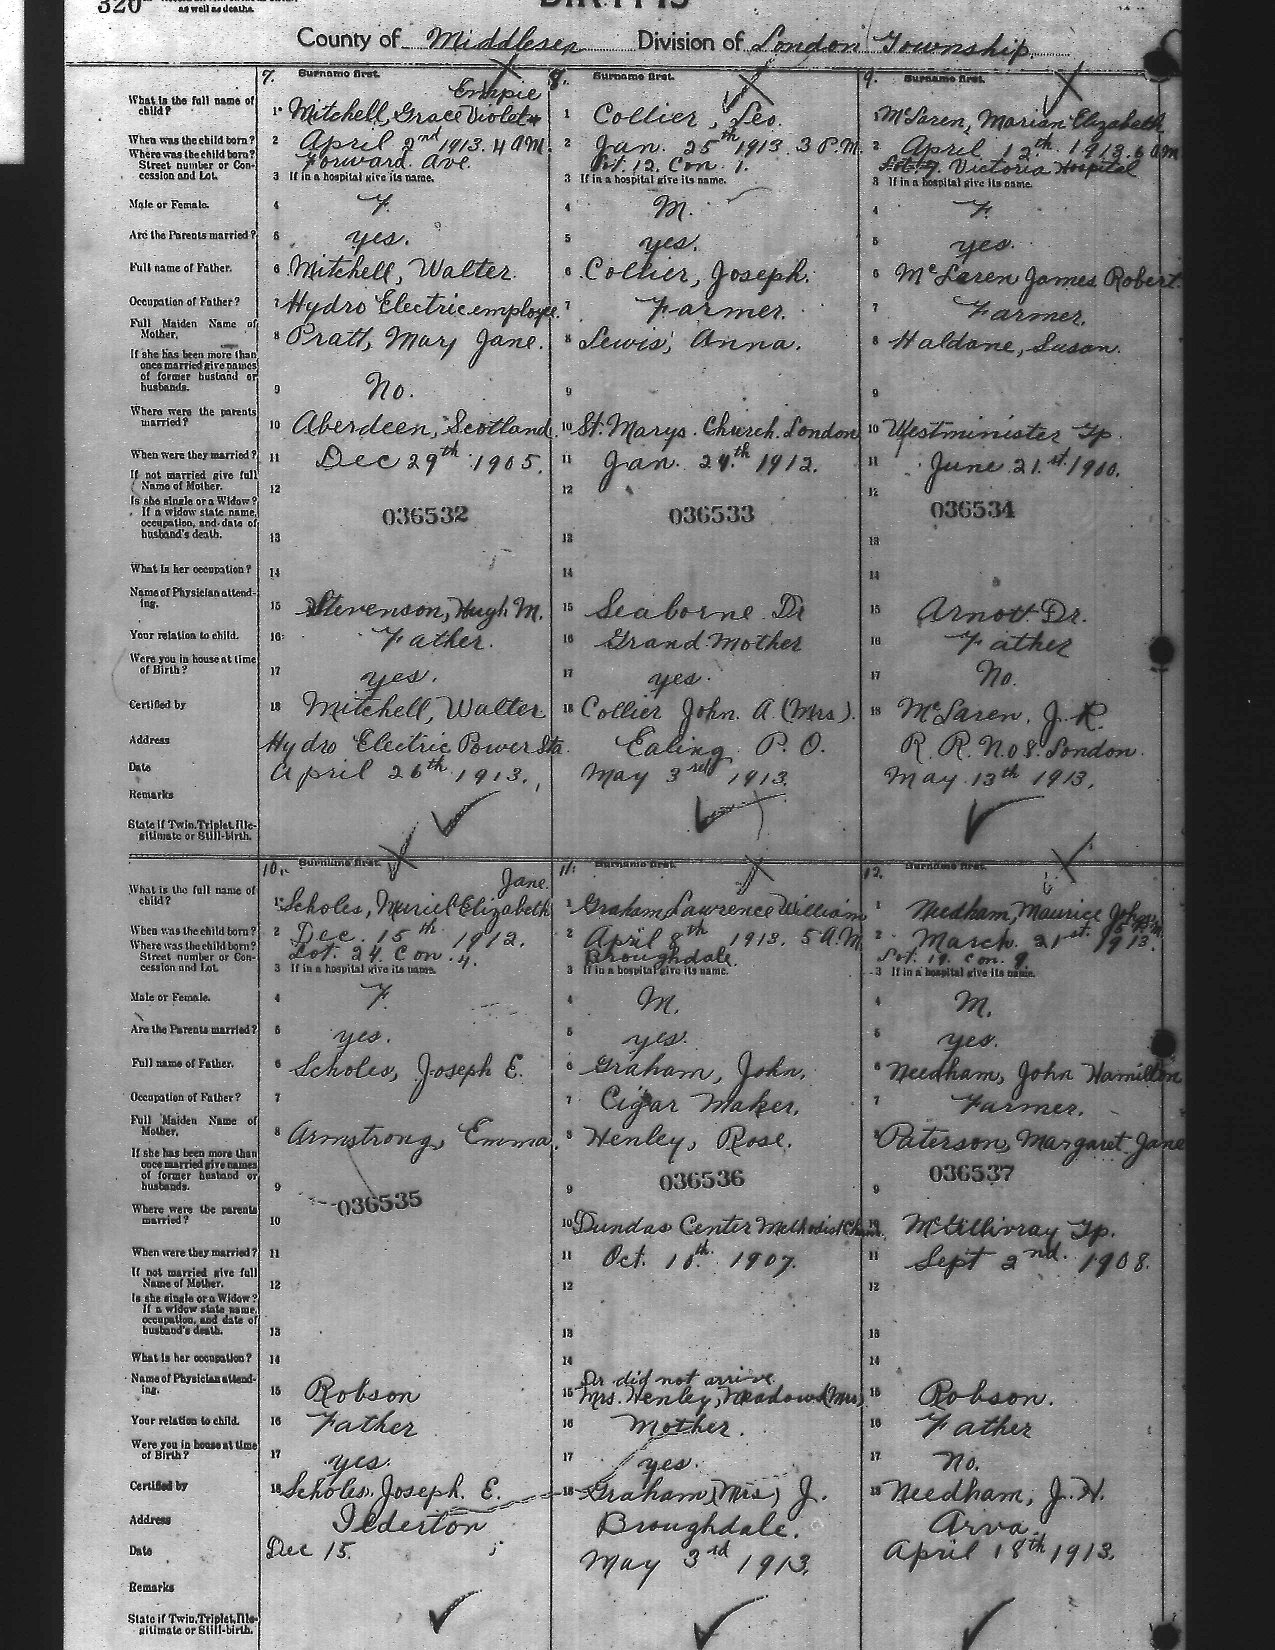 320
as well as deaths.
BIRTHS
County of Middlesex Division of London Township
7. Surname first.
8. Surname first.
9. Surname first.
What is the full name of child?
1 Mitchell, Grace Violet Empie
1 Collier, Leo.
1 McLaren, Marian Elizabeth
When was the child born?
2 April 2nd 1913. 4 AM.
2 Jan. 25th 1913 3 P.M.
2 April 12th 1913. 6 AM
Where was the child born? Street number or Concession and Lot.
Forward Ave.
Lot. 12. Con. 1.
Victoria Hospital
3 If in a hospital give its name.
3 If in a hospital give its name.
3 If in a hospital give its name.
Male or Female.
4 F.
4 M.
4 F.
Are the Parents married?
5 yes.
5 yes.
5 yes.
Full name of Father.
6 Mitchell, Walter.
6 Collier, Joseph.
6 McLaren James Robert.
Occupation of Father?
7 Hydro Electric employee.
7 Farmer.
7 Farmer.
Full Maiden Name of Mother.
8 Pratt, Mary Jane.
8 Lewis, Anna.
8 Haldane, Susan.
If she has been more than once married give names of former husband or husbands.
9 No.
9
9
Where were the parents married?
10 Aberdeen, Scotland.
10 St. Marys. Church. London
10 Westminister Tp.
When were they married?
11 Dec 29th 1905.
11 Jan. 24th 1912.
11 June 21.st 1900.
If not married give full Name of Mother.
12
12
12
Is she single or a Widow? If a widow state name, occupation, and date of husband's death.
036532
036533
036534
13
13
13
What is her occupation?
14
14
14
Name of Physician attending.
15 Stevenson, Hugh M.
15 Seaborne Dr
15 Arnott Dr.
Your relation to child.
16 Father.
16 Grand Mother
16 Father
Were you in house at time of Birth?
17 yes.
17 yes.
17 No.
Certified by
18 Mitchell, Walter
18 Collier John. A (Mrs).
18 McLaren. J. R.
Address
Hydro Electric Power Sta.
Ealing P. O.
R. R. No 8. London.
Date
April 26th 1913.
May 3rd 1913.
May 13th 1913.
Remarks
State if Twin, Triplet, Illegitimate or Still-birth.
10. Surname first.
11. Surname first.
12. Surname first.
What is the full name of child?
1 Scholes, Muriel Elizabeth Jane.
1 Graham Lawrence William
1 Needham, Maurice John
When was the child born?
2 Dec. 15th 1912.
2 April 8th 1913. 5 A.M.
2 March. 21st. 1913.
Where was the child born? Street number or Concession and Lot.
Lot. 24. Con. 4.
Broughdale.
Lot. 19. Con. 9.
3 If in a hospital give its name.
3 If in a hospital give its name.
3 If in a hospital give its name.
Male or Female.
4 F.
4 M.
4 M.
Are the Parents married?
5 yes.
5 yes.
5 yes.
Full name of Father.
6 Scholes, Joseph E.
6 Graham, John.
6 Needham, John Hamilton
Occupation of Father?
7
7 Cigar Maker.
7 Farmer.
Full Maiden Name of Mother.
8 Armstrong, Emma.
8 Henley, Rose.
8 Paterson, Margaret Jane
If she has been more than once married give names of former husband or husbands.
036535
036536
036537
9
9
9
Where were the parents married?
10
10 Dundas Center Methodist Church.
10 McGillivray Tp.
When were they married?
11
11 Oct. 16th 1907.
11 Sept 2nd. 1908.
If not married give full Name of Mother.
12
12
12
Is she single or a Widow? If a widow state name, occupation, and date of husband's death.
13
13
13
What is her occupation?
14
14
14
Name of Physician attending.
Dr did not arrive.
15 Robson
15 Mrs. Henley, Meadows (Mrs)
15 Robson.
Your relation to child.
16 Father
16 Mother.
16 Father
Were you in house at time of Birth?
17 yes.
17 yes.
17 No.
Certified by
18 Scholes, Joseph. E.
18 Graham (Mrs) J.
18 Needham, J. H.
Address
Ilderton
Broughdale.
Arva.
Date
Dec 15.
May 3rd 1913.
April 18th 1913.
Remarks
State if Twin, Triplet, Illegitimate or Still-birth.